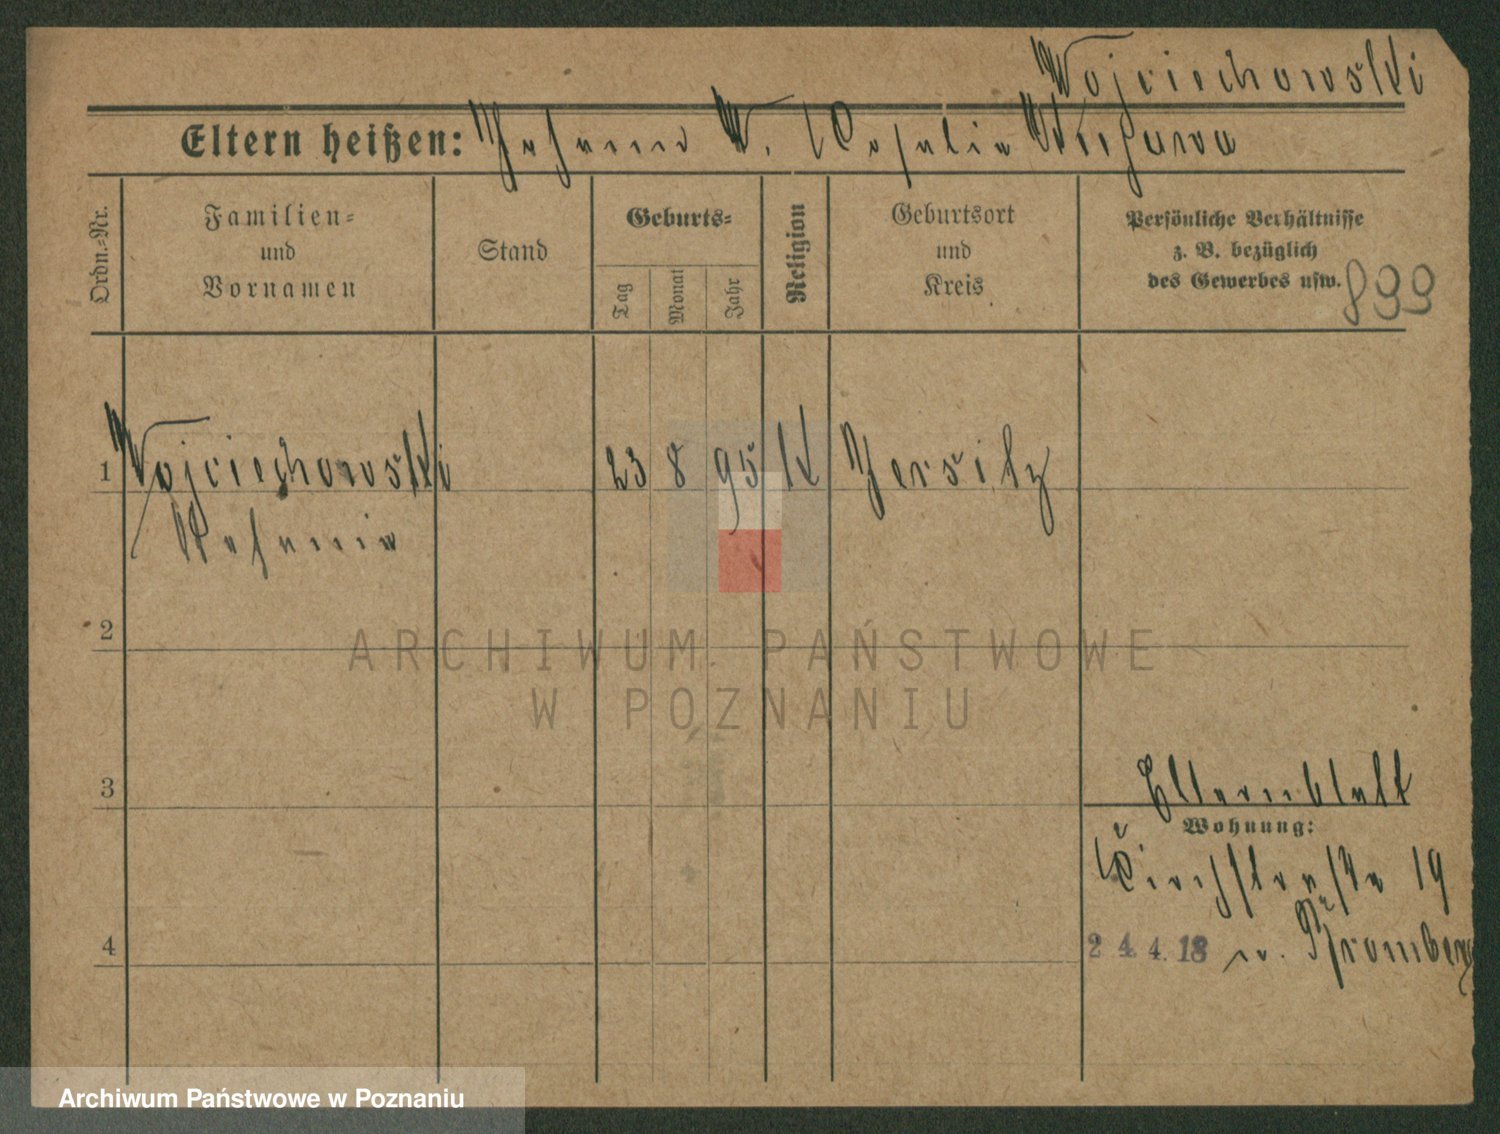 Wojciechowski
Eltern heißen: Johann W. Rosalie
Ordn.-Nr.
Familien=
und
Vornamen
Stand
Geburts=
Tag
Monat
Jahr
Religion
Geburtsort
und
Kreis
Persönliche Verhältnisse
z. B. bezüglich
des Gewerbes usw.
899
1 Wojciechowski 23 8 95 K Jersitz
2
3
Elternblatt
Wohnung:
Kirchstraße 19
4
24.4.18 n. Bromberg
ARCHIWUM PAŃSTWOWE
W POZNANIU
Archiwum Państwowe w Poznaniu